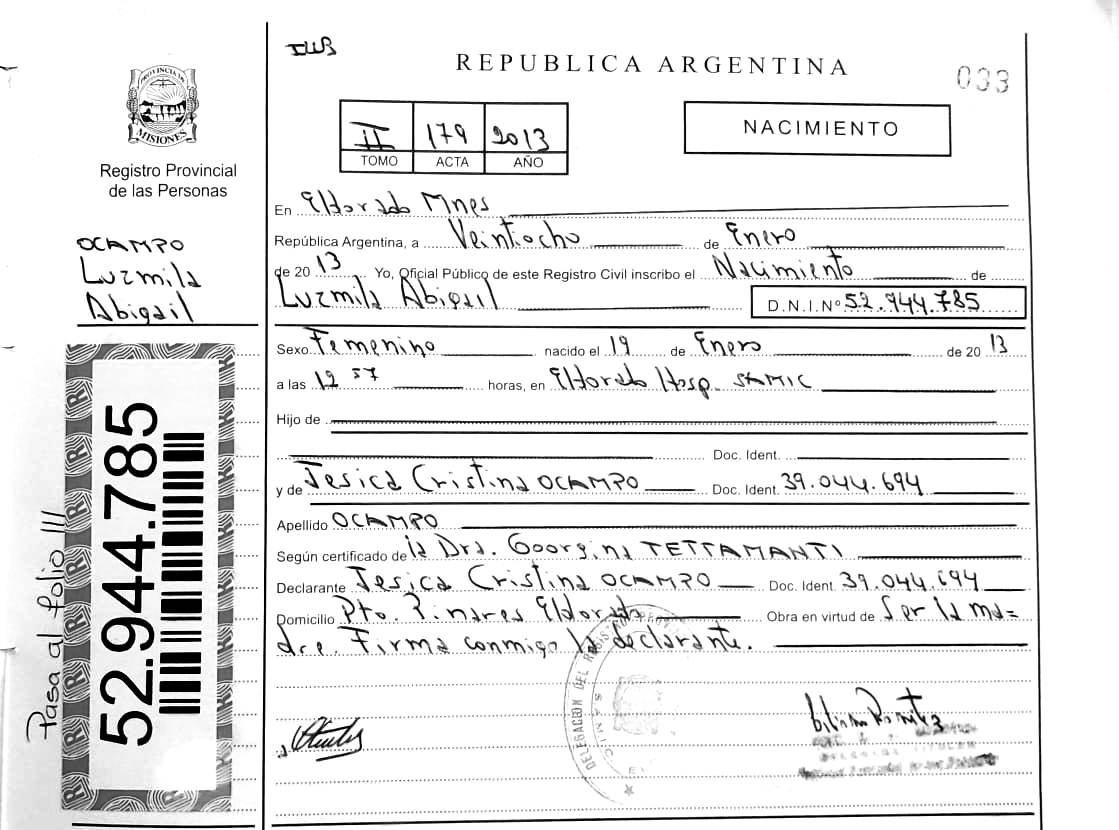 IUB
REPUBLICA ARGENTINA
033
PROVINCIA DE
MISIONES
Registro Provincial
de las Personas
II 179 2013
TOMO ACTA AÑO
NACIMIENTO
En Eldorado Mnes
República Argentina, a Veintiocho de Enero
de 2013 Yo, Oficial Público de este Registro Civil inscribo el Nacimiento de
Luzmila Abigail D.N.I.Nº 52.944.785
OCAMPO
Luzmila
Abigail
Sexo Femenino nacido el 19 de Enero de 2013
a las 12 57 horas, en Eldorado Hosp. SAMIC
Hijo de
Doc. Ident.
y de Jesica Cristina OCAMPO Doc. Ident. 39.044.694
Apellido OCAMPO
Según certificado de la Dra. Georgina TETTAMANTI
Declarante Jesica Cristina OCAMPO Doc. Ident. 39.044.694
Domicilio Pto. Pinares Eldorado Obra en virtud de Ser la ma=
dre. Firma conmigo la declarante.
52.944.785
Pasa al folio III
DELEGACION DEL REGISTRO